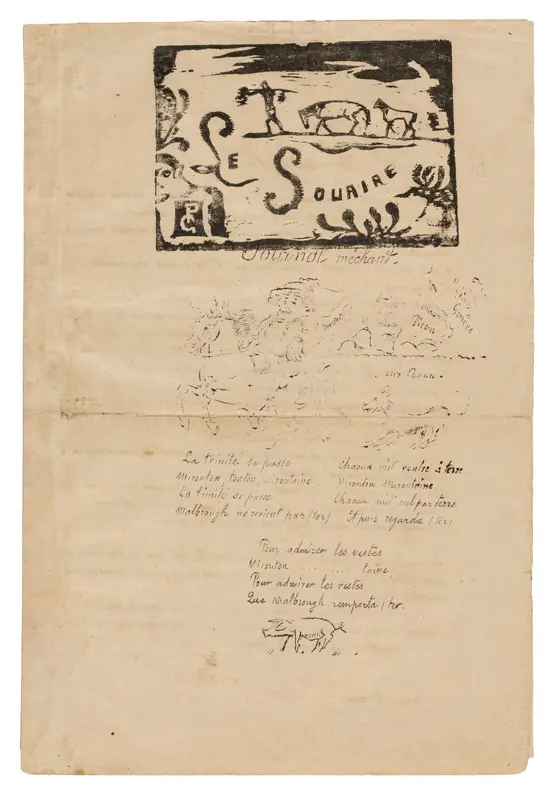 LE SOURIRE
PG
Journal méchant.
Genève
Picon
chez Pomm.
La trinité se passe
Mironton, tonton, mirontaine.
La trinité se passe
Malbrough ne revient pas (ter)
Chacun mit ventre à terre
Mironton Mirontaine.
Chacun mit cul par terre
Et puis regarda (ter)
Pour admirer les restes
Mironton . . . . . . taine.
Pour admirer les restes
Que Malbrough remporta (ter.